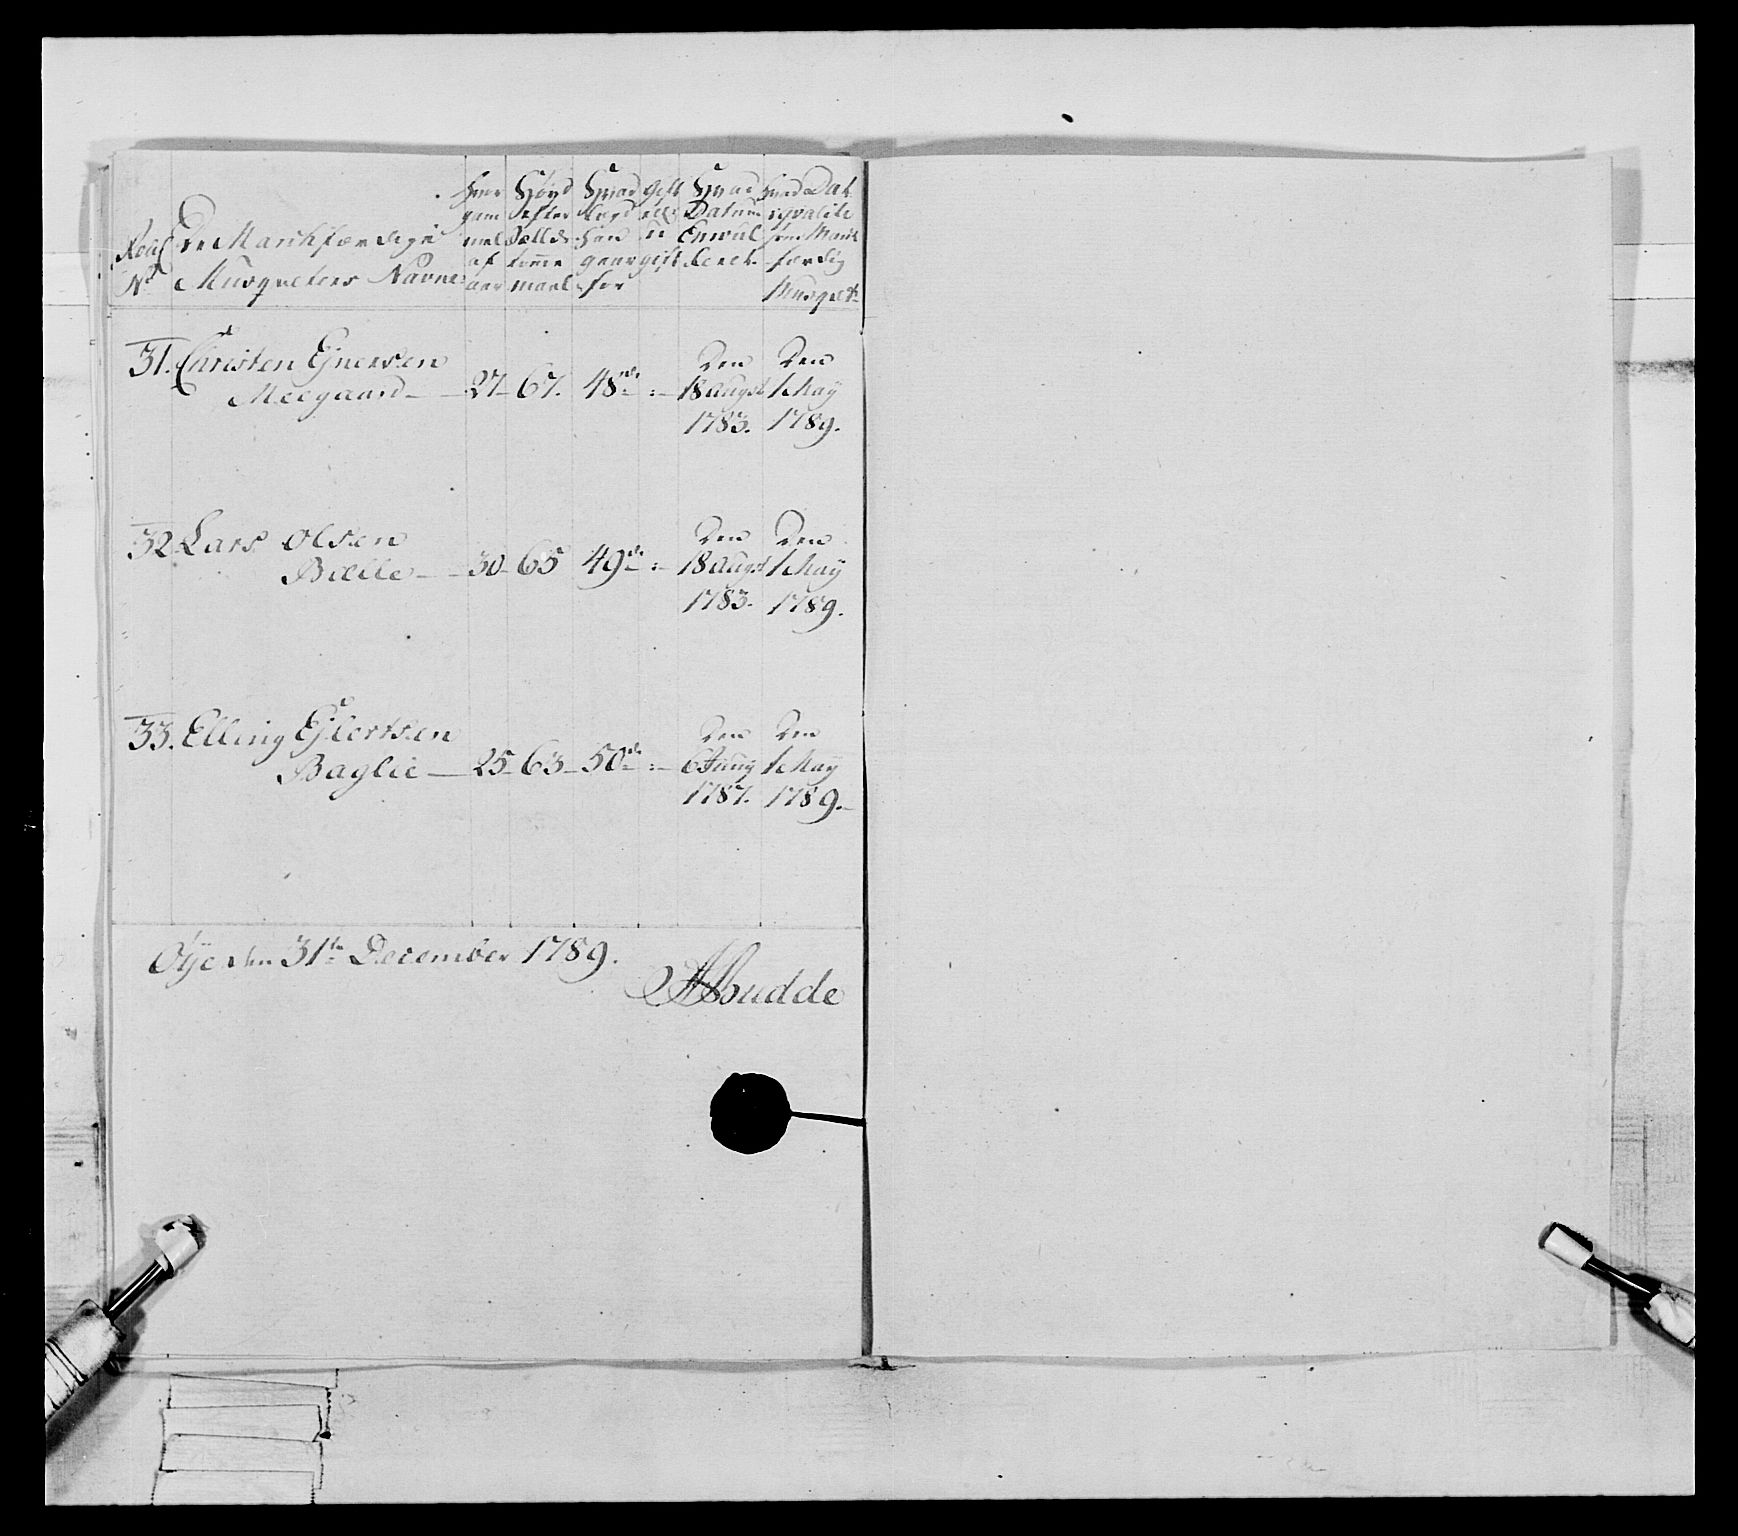 Roul No
De Marchfærdige
Musqveteers Navne
hvor gam mel af aar
Høyd efter Sælds tomme maal
Hvad lægd han giver for
Gift eller u gift
Hvad Datum Enroul leret
hvad Dat
som March færdig Musquet
31. Christen Ejnersen
Meegaard — 27 — 67. 48de :— Den 18 Augst 1783. Den 1 May 1789.
32 Lars Olsen
Bælle — 30 — 65 49de :— Den 18 Augst 1783. Den 1 May 1789.
33. Elling Ejlertsen
Baglie — 25 — 63 — 50de :— Den 6 Juny 1787. Den 1 May 1789.
Øye den 31te December 1789.
Budde